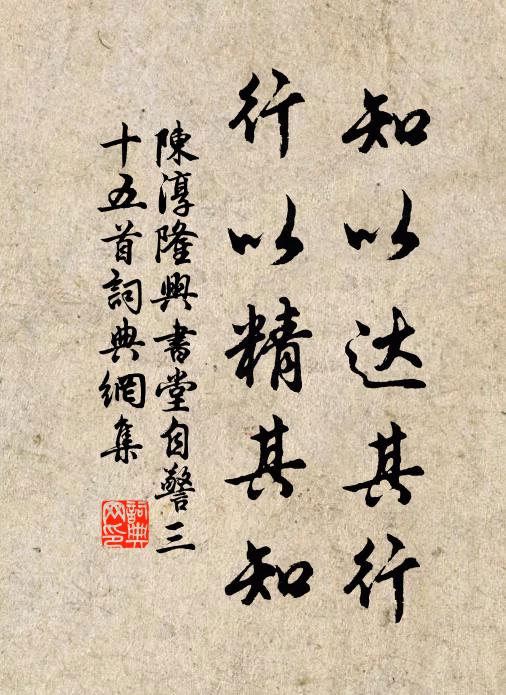 知以达其行
行以精其知
陳淳隆興書堂自警三
十五首詞典網集
詞典
网印